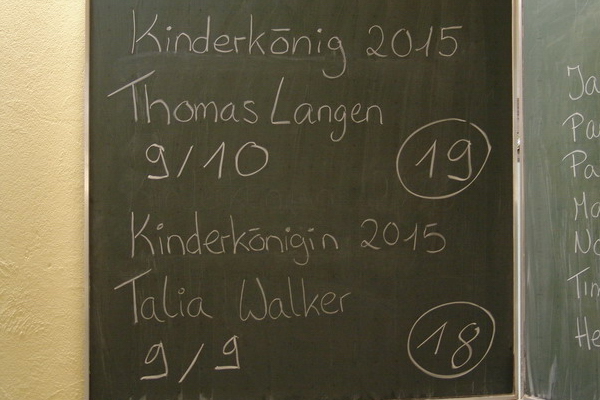 Kinderkönig 2015
Thomas Langen
9/10 19
Kinderkönigin 2015
Talia Walker
9/9 18